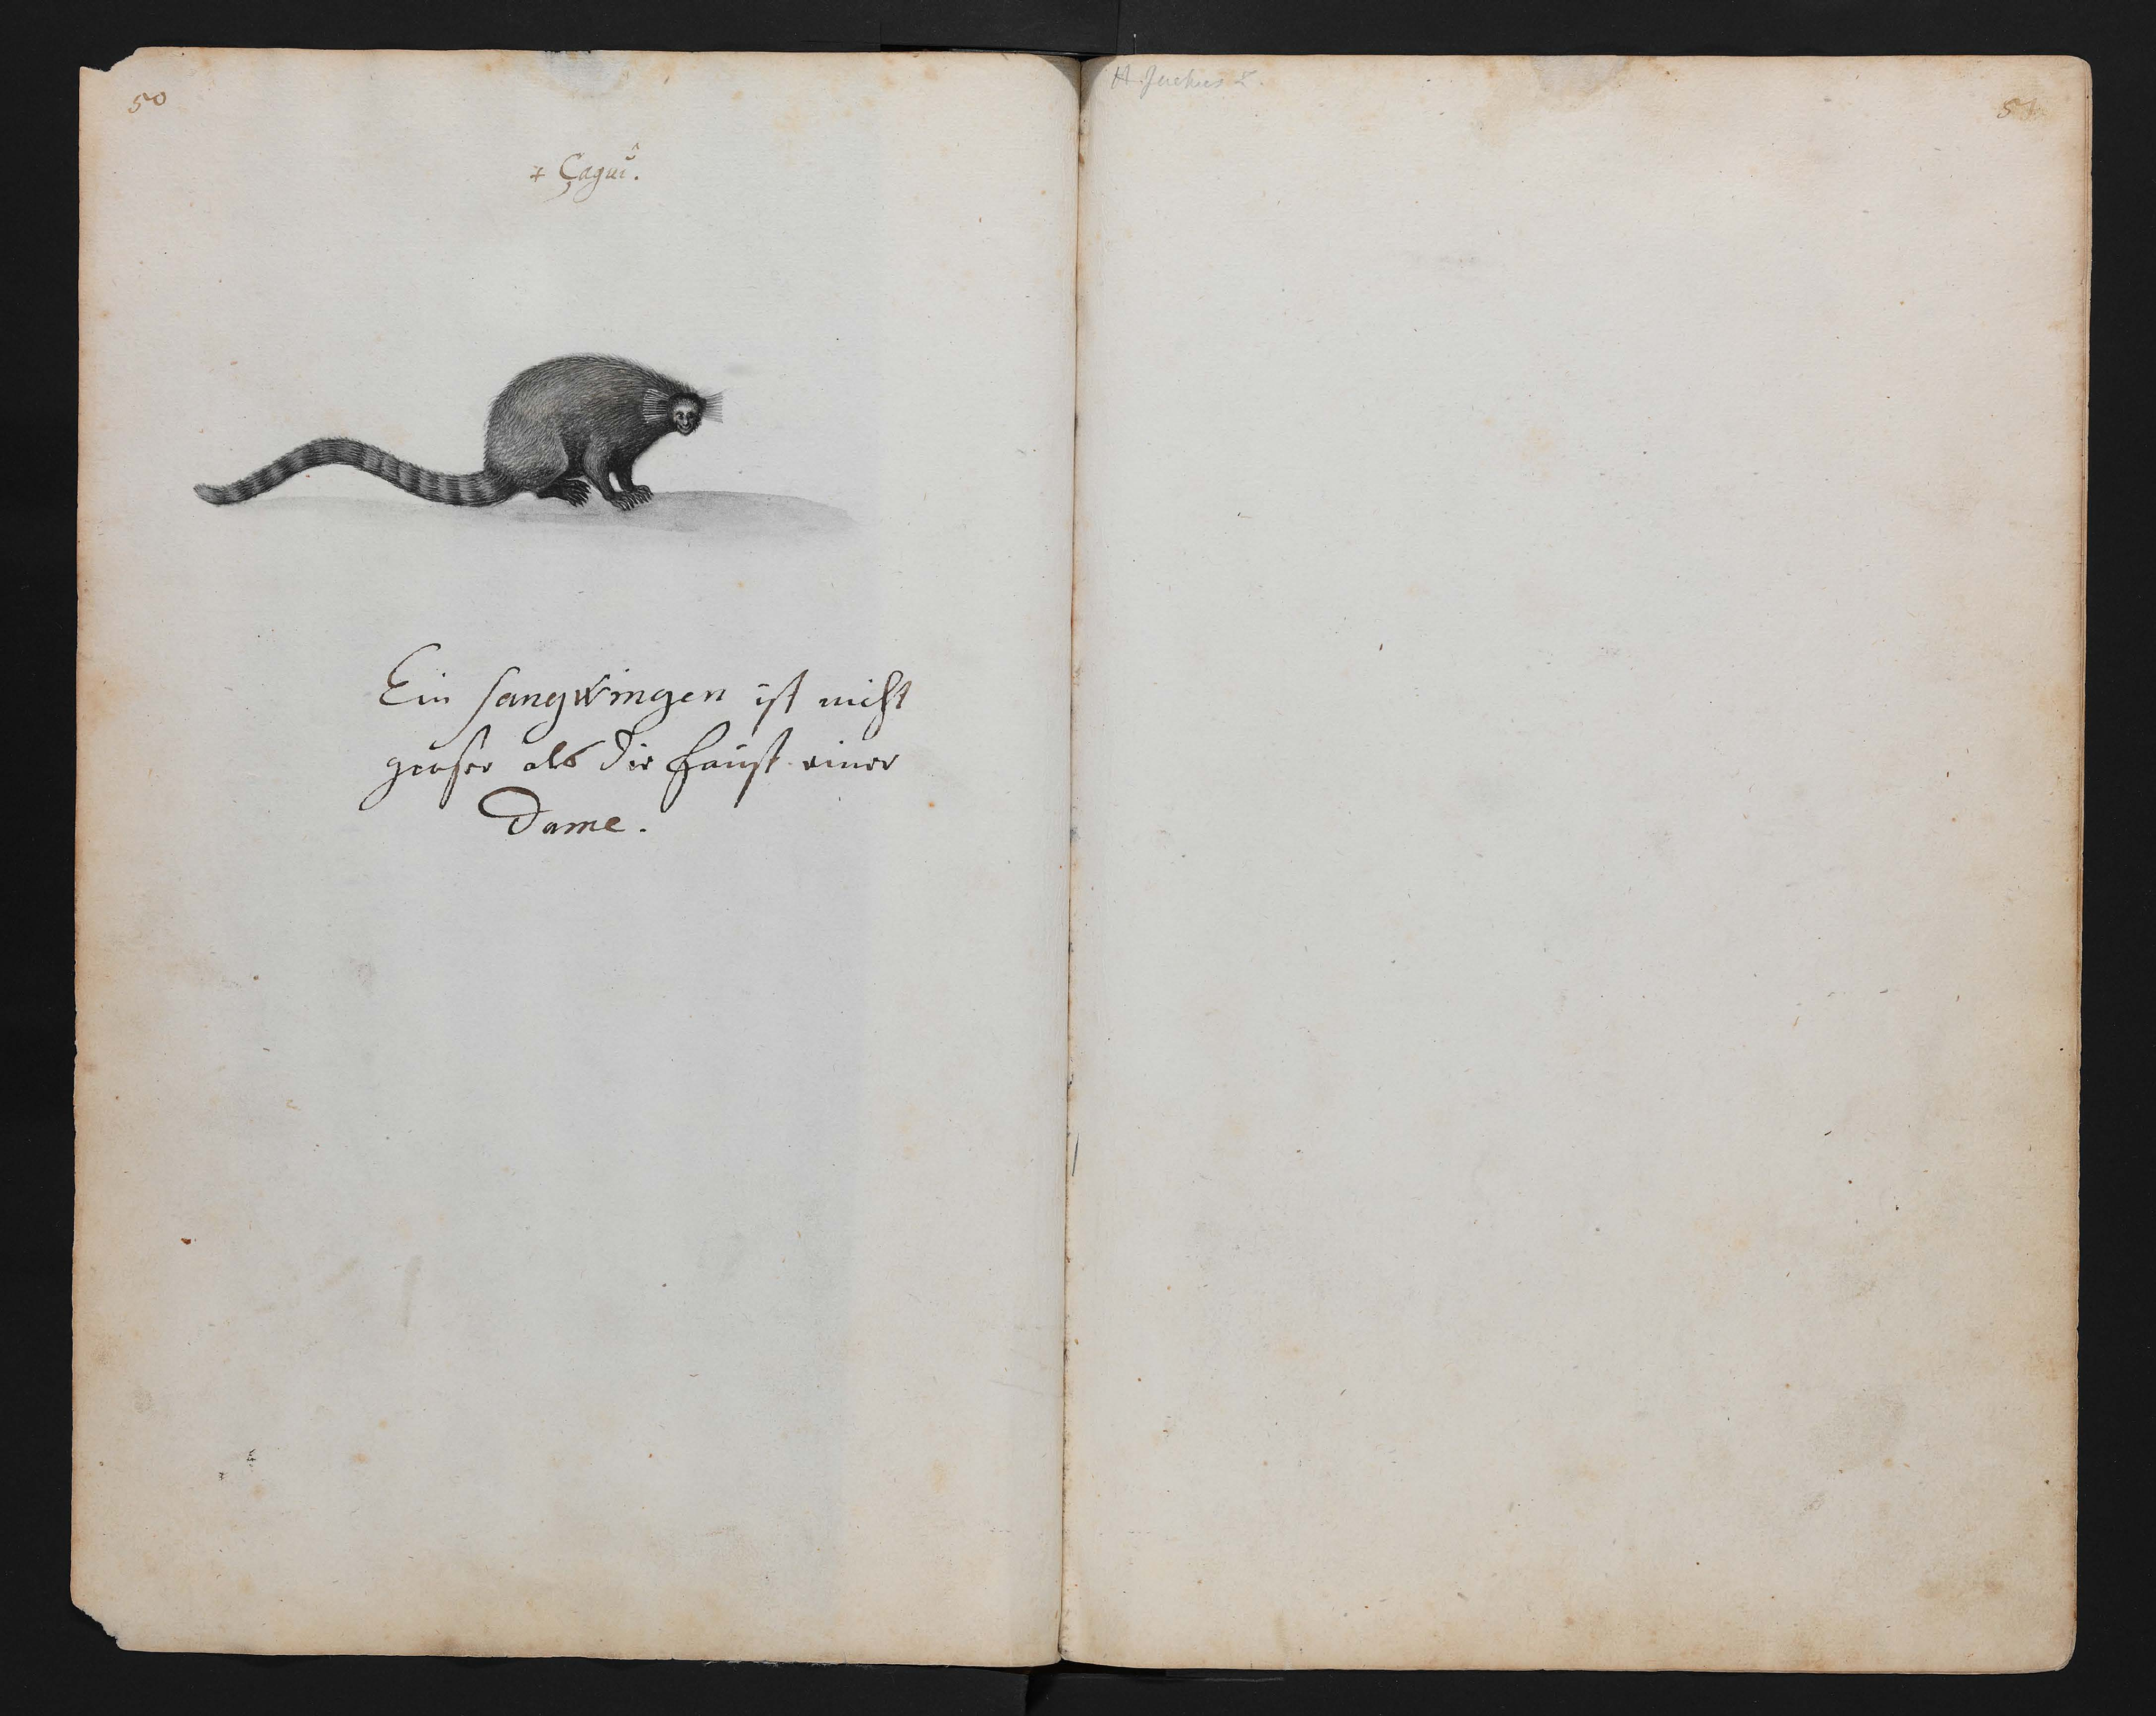 50
+ Çaguî.
Ein sangwingen ist nicht
groser als die faust einer
Dame.
H. Jachus L.